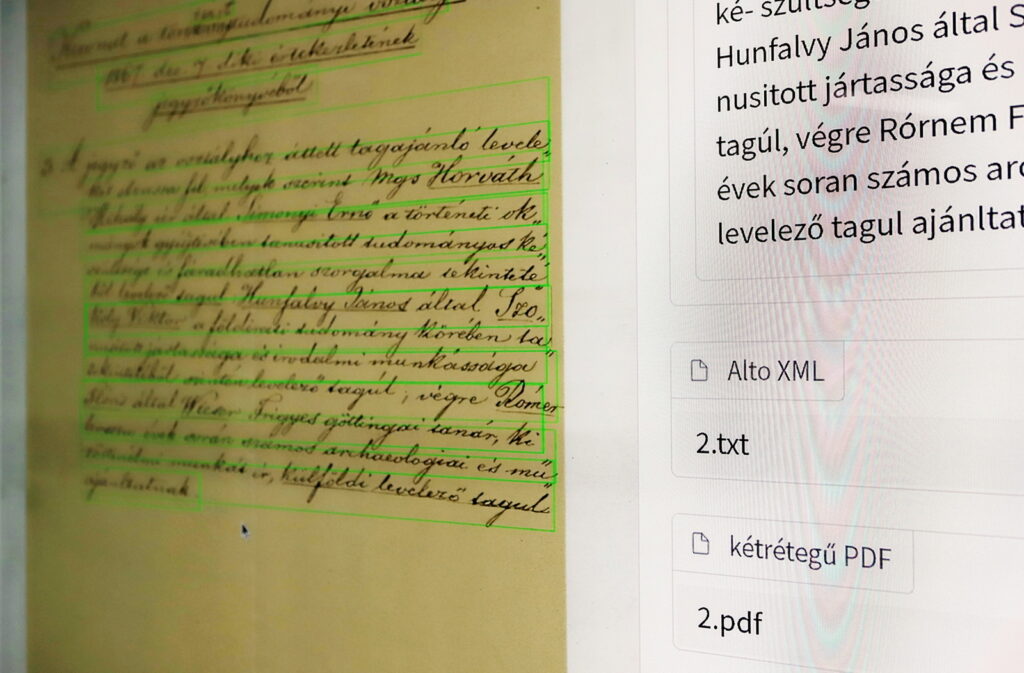 Kivonat a történettudományi
1867 dec 7 d.ki értekezletének
jegyzőkönyvéből
3. A jegyző az osztályhoz áttett tagajánló levele„
ket olvassa fel melyek szerint Mgs Horváth
Mihály úr által Simonyi Ernő a történeti ok„
mányok gyüjtésében tanusított tudományos ké„
szültsége és fáradhatlan szorgalma tekinteté„
ből levelező tagul Hunfalvy János által Szo„
Viktor a földirati tudomány körében ta„
nusított jártassága és irodalmi munkássága
tekintetéből szintén levelező tagúl, végre Rómer
Flóris által Wieser Frigyes göttingai tanár, ki
évek során számos archaeologiai és mű„
történelmi munkát ír, külföldi levelező tagul
ajánltatnak
ké- szültség
Hunfalvy János által S
nusitott jártassága és
tagúl, végre Rórnem F
évek soran számos arc
levelező tagul ajánltat
Alto XML
2.txt
kétrétegű PDF
2.pdf